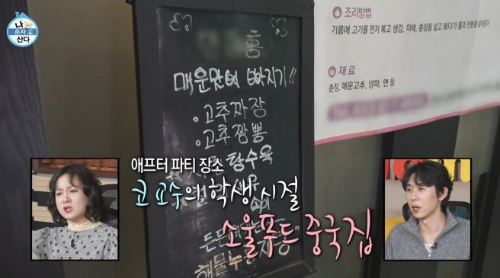 나 혼자 산다
조리방법
기름에 고기를 먼저 볶고 생강, 야채, 춘장을 넣고 볶다가
재료
춘장, 매운고추, 양파, 면 등
홍
매운맛에 빠지기!!
고추짜장
고추짬뽕
탕수육
애프터 파티 장소
코 교수의 학생 시절
소울푸드 중국집